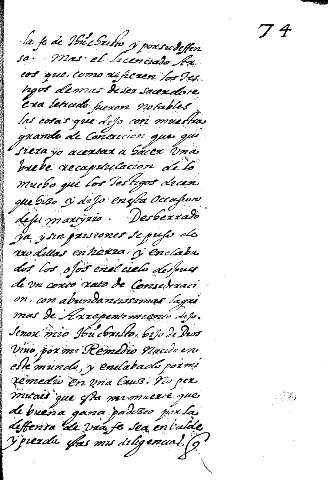 74
la fe de Ihũ Chrisło y por su deffen
sa. Mas el licenciado Ar
cos que como refieren los Tes
tigos demas de ser sacerdote
era letrado fueron notables
las cosas que dijo con muestra
grande de Contricion que qui
siera yo acertar a haçer vna
breve recapitulacion de lo
mucho que los Testigos decian
que hiço y dijo en esta Ocassion
de su martyrio. Desherrado
ya, y sin prissiones se puso de
rrodillas en tierra, y enclaba
dos los ojos en el cielo despues
de vn corto rato de Consideraci
on, con abundantissimas lagri
mas de Arrepentimiento dijo.
Señor mio Ihũ Christo, hijo de Dios
vivo, por mi Remedio Nacido en
este mundo, y enclabado por mi
remedio en vna Cruz. No per
mitais que esta mi muerte que
de buena gana padezco por la
deffensa de vra fe sea en balde
y pierda estas mis diligencias.